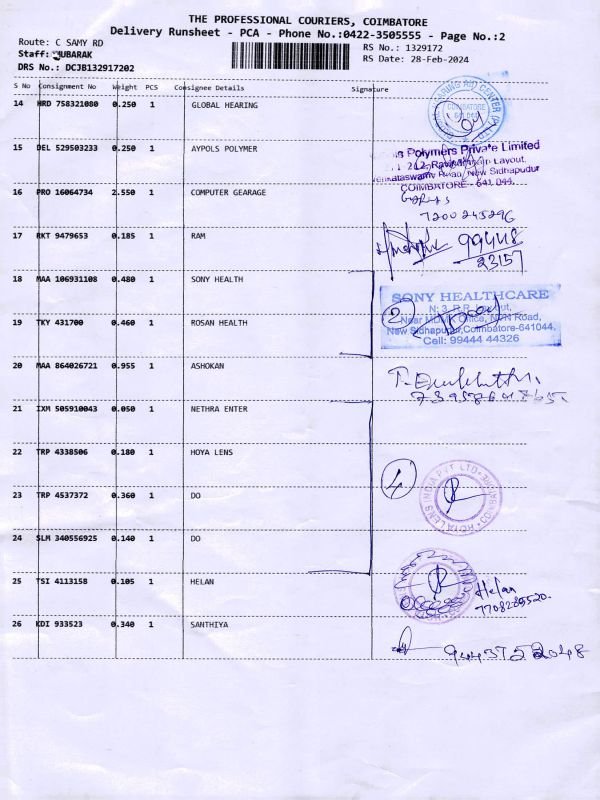 THE PROFESSIONAL COURIERS, COIMBATORE
Delivery Runsheet - PCA - Phone No.:0422-3505555 - Page No.:2
Route: C SAMY RD
RS No.: 1329172
Staff: MUBARAK
RS Date: 28-Feb-2024
DRS No.: DCJB132917202
S No Consignment No Weight PCS Consignee Details Signature
14 HRD 758321080 0.250 1 GLOBAL HEARING
COIMBATORE
15 DEL 529503233 0.250 1 AYPOLS POLYMER
Polymers Private Limited
Layout,
Road, New Sidhapudur
COIMBATORE - 641 044.
16 PRO 16064734 2.550 1 COMPUTER GEARAGE
7200245296
17 RKT 9479653 0.185 1 RAM
99448
23157
18 MAA 106931108 0.480 1 SONY HEALTH
SONY HEALTHCARE
2
New Sidhapudur, Coimbatore-641044.
Cell: 99444 44326
19 TKY 431700 0.460 1 ROSAN HEALTH
20 MAA 864026721 0.955 1 ASHOKAN
21 IXM 505910043 0.050 1 NETHRA ENTER
22 TRP 4338506 0.180 1 HOYA LENS
4
HOYA LENS INDIA PVT LTD
23 TRP 4537372 0.360 1 DO
24 SLM 340556925 0.140 1 DO
25 TSI 4113158 0.105 1 HELAN
Helan
26 KDI 933523 0.340 1 SANTHIYA